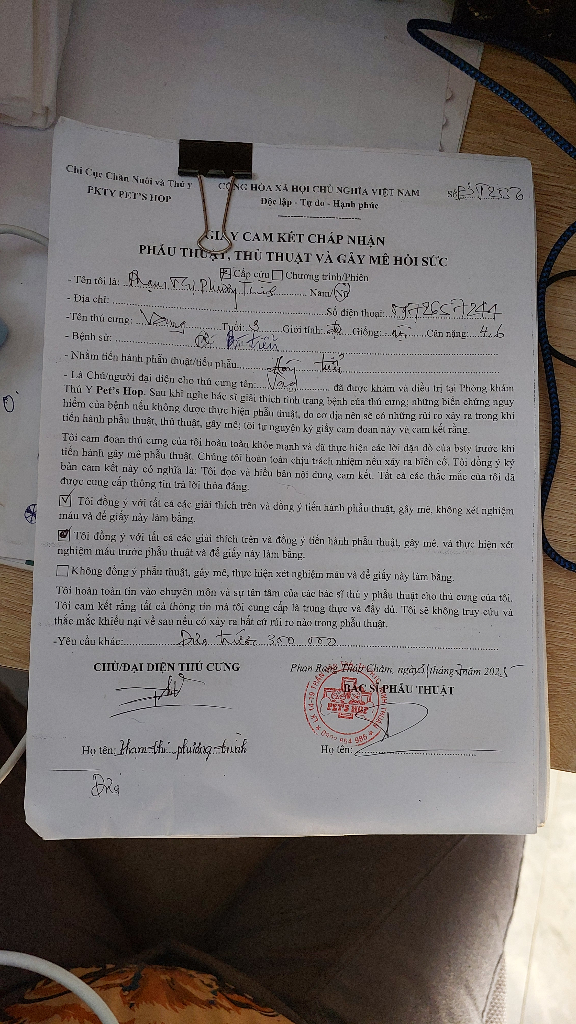 Chi Cục Chăn Nuôi và Thú y
PKTY PET'S HOP
CỘNG HÒA XÃ HỘI CHỦ NGHĨA VIỆT NAM
Độc lập - Tự do - Hạnh phúc
Số
GIẤY CAM KẾT CHẤP NHẬN
PHẪU THUẬT, THỦ THUẬT VÀ GÂY MÊ HỒI SỨC
Cấp cứu Chương trình/Phiên
- Tên tôi là: Phạm Thị Phương Trinh Nam/Nữ
- Địa chỉ: Số điện thoại:
-Tên thú cưng: Vàng Tuổi: 3 Giới tính: Giống: Cân nặng: 4.6
- Bệnh sử:
- Nhằm tiến hành phẫu thuật/tiểu phẫu
- Là Chủ/người đại diện cho thú cưng tên: đã được khám và điều trị tại Phòng khám
Thú Y Pet's Hop. Sau khi nghe bác sĩ giải thích tình trạng bệnh của thú cưng; những biến chứng nguy
hiểm của bệnh nếu không được thực hiện phẫu thuật, do cơ địa nên sẽ có những rủi ro xảy ra trong khi
tiến hành phẫu thuật, thủ thuật, gây mê; tôi tự nguyện ký giấy cam đoạn này và cam kết rằng.
Tôi cam đoan thú cưng của tôi hoàn toàn khỏe mạnh và đã thực hiện các lời dặn dò của bsty trước khi
tiến hành gây mê phẫu thuật. Chúng tôi hoàn toàn chịu trách nhiệm nếu xảy ra biến cố. Tôi đồng ý ký
bản cam kết này có nghĩa là: Tôi đọc và hiểu bản nội dung cam kết. Tất cả các thắc mắc của tôi đã
được cung cấp thông tin trả lời thỏa đáng.
Tôi đồng ý với tất cả các giải thích trên và đồng ý tiến hành phẫu thuật, gây mê, không xét nghiệm
máu và để giấy này làm bằng.
Tôi đồng ý với tất cả các giải thích trên và đồng ý tiến hành phẫu thuật, gây mê, và thực hiện xét
nghiệm máu trước phẫu thuật và để giấy này làm bằng.
Không đồng ý phẫu thuật, gây mê, thực hiện xét nghiệm máu và để giấy này làm bằng.
Tôi hoàn toàn tin vào chuyên môn và sự tận tâm của các bác sĩ thú y phẫu thuật cho thú cưng của tôi.
Tôi cam kết rằng tất cả thông tin mà tôi cung cấp là trung thực và đầy đủ. Tôi sẽ không truy cứu và
thắc mắc khiếu nại về sau nếu có xảy ra bất cứ rủi ro nào trong phẫu thuật.
-Yêu cầu khác: Đưa trước 300 000
CHỦ/ĐẠI DIỆN THÚ CƯNG
Phan Rang Tháp Chàm, ngày tháng năm 2025
BÁC SĨ PHẪU THUẬT
PET'S HOP
Họ tên: Pham thi phương trinh
Họ tên: